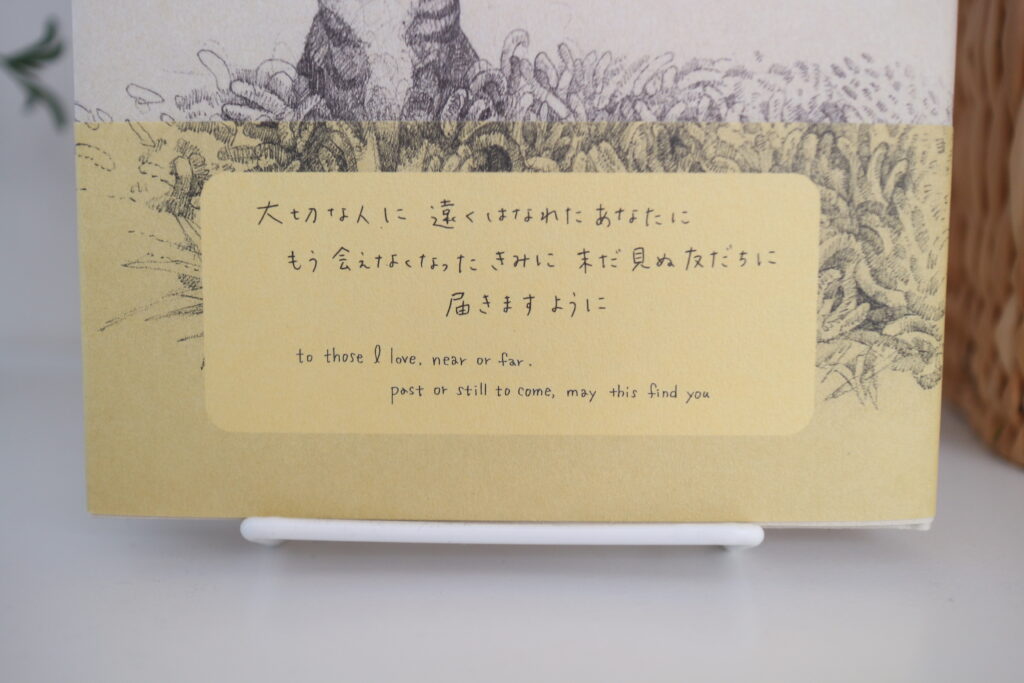 大切な人に 遠くはなれたあなたに
もう会えなくなったきみに 未だ見ぬ友だちに
届きますように
to those I love, near or far.
past or still to come, may this find you